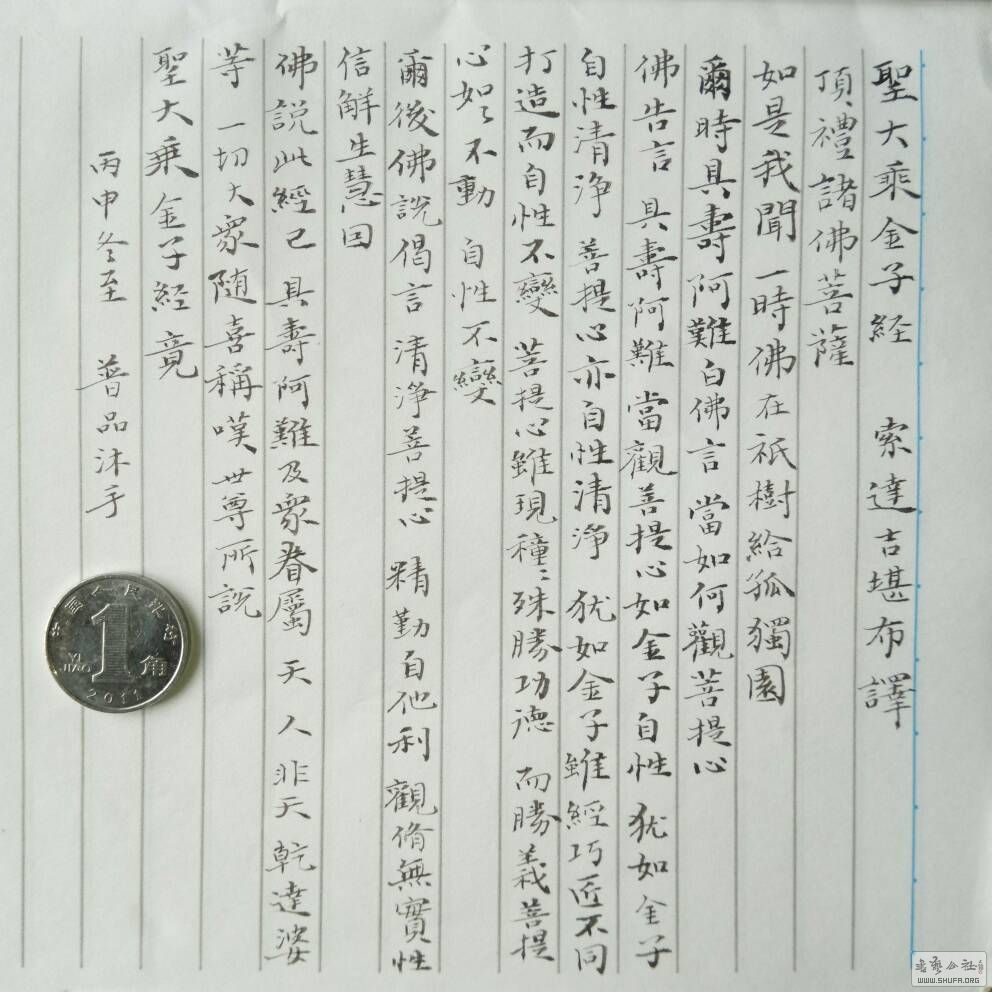 聖大乘金子經 索達吉堪布譯
頂禮諸佛菩薩
如是我聞 一時佛在祇樹給孤獨園
爾時具壽阿難白佛言 當如何觀菩提心
佛告言 具壽阿難 當觀菩提心如金子自性 犹如金子
自性清淨 菩提心亦自性清淨 犹如金子雖經巧匠不同
打造而自性不變 菩提心雖現種〻殊勝功德 而勝義菩提
心如〻不動 自性不變
爾後佛說偈言 清淨菩提心 精勤自他利 觀脩無實性
信解生慧因
佛說此經已 具壽阿難及眾眷屬 天 人 非天 乾達婆
等 一切大眾隨喜稱嘆世尊所說
聖大乘金子經竟
丙申冬至 普品沐手
中国人民银行
YI JIAO
1角
2011
書藝公社
WWW.SHUFA.ORG